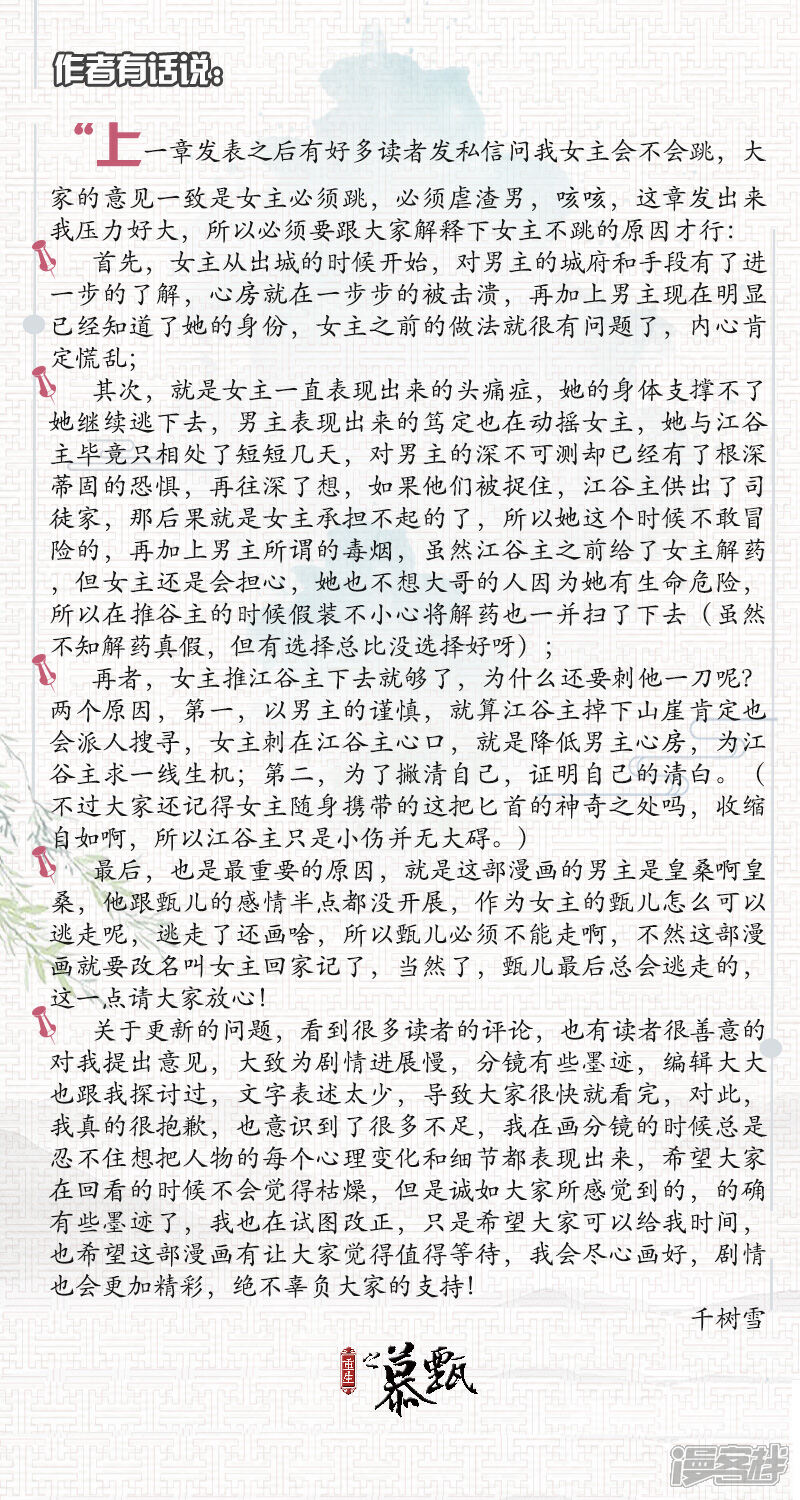 作者有话说：
“上一章发表之后有好多读者发私信问我女主会不会跳，大
家的意见一致是女主必须跳，必须虐渣男，咳咳，这章发出来
我压力好大，所以必须要跟大家解释下女主不跳的原因才行：
首先，女主从出城的时候开始，对男主的城府和手段有了进
一步的了解，心房就在一步步的被击溃，再加上男主现在明显
已经知道了她的身份，女主之前的做法就很有问题了，内心肯
定慌乱；
其次，就是女主一直表现出来的头痛症，她的身体支撑不了
她继续逃下去，男主表现出来的笃定也在动摇女主，她与江谷
主毕竟只相处了短短几天，对男主的深不可测却已经有了根深
蒂固的恐惧，再往深了想，如果他们被捉住，江谷主供出了司
徒家，那后果就是女主承担不起的了，所以她这个时候不敢冒
险的，再加上男主所谓的毒烟，虽然江谷主之前给了女主解药
，但女主还是会担心，她也不想大哥的人因为她有生命危险，
所以在推谷主的时候假装不小心将解药也一并扫了下去（虽然
不知解药真假，但有选择总比没选择好呀）；
再者，女主推江谷主下去就够了，为什么还要刺他一刀呢？
两个原因，第一，以男主的谨慎，就算江谷主掉下山崖肯定也
会派人搜寻，女主刺在江谷主心口，就是降低男主心房，为江
谷主求一线生机；第二，为了撇清自己，证明自己的清白。（
不过大家还记得女主随身携带的这把匕首的神奇之处吗，收缩
自如啊，所以江谷主只是小伤并无大碍。）
最后，也是最重要的原因，就是这部漫画的男主是皇桑啊皇
桑，他跟甄儿的感情半点都没开展，作为女主的甄儿怎么可以
逃走呢，逃走了还画啥，所以甄儿必须不能走啊，不然这部漫
画就要改名叫女主回家记了，当然了，甄儿最后总会逃走的，
这一点请大家放心！
关于更新的问题，看到很多读者的评论，也有读者很善意的
对我提出意见，大致为剧情进展慢，分镜有些墨迹，编辑大大
也跟我探讨过，文字表述太少，导致大家很快就看完，对此，
我真的很抱歉，也意识到了很多不足，我在画分镜的时候总是
忍不住想把人物的每个心理变化和细节都表现出来，希望大家
在回看的时候不会觉得枯燥，但是诚如大家所感觉到的，的确
有些墨迹了，我也在试图改正，只是希望大家可以给我时间，
也希望这部漫画有让大家觉得值得等待，我会尽心画好，剧情
也会更加精彩，绝不辜负大家的支持！
千树雪
重生之慕甄
漫客栈